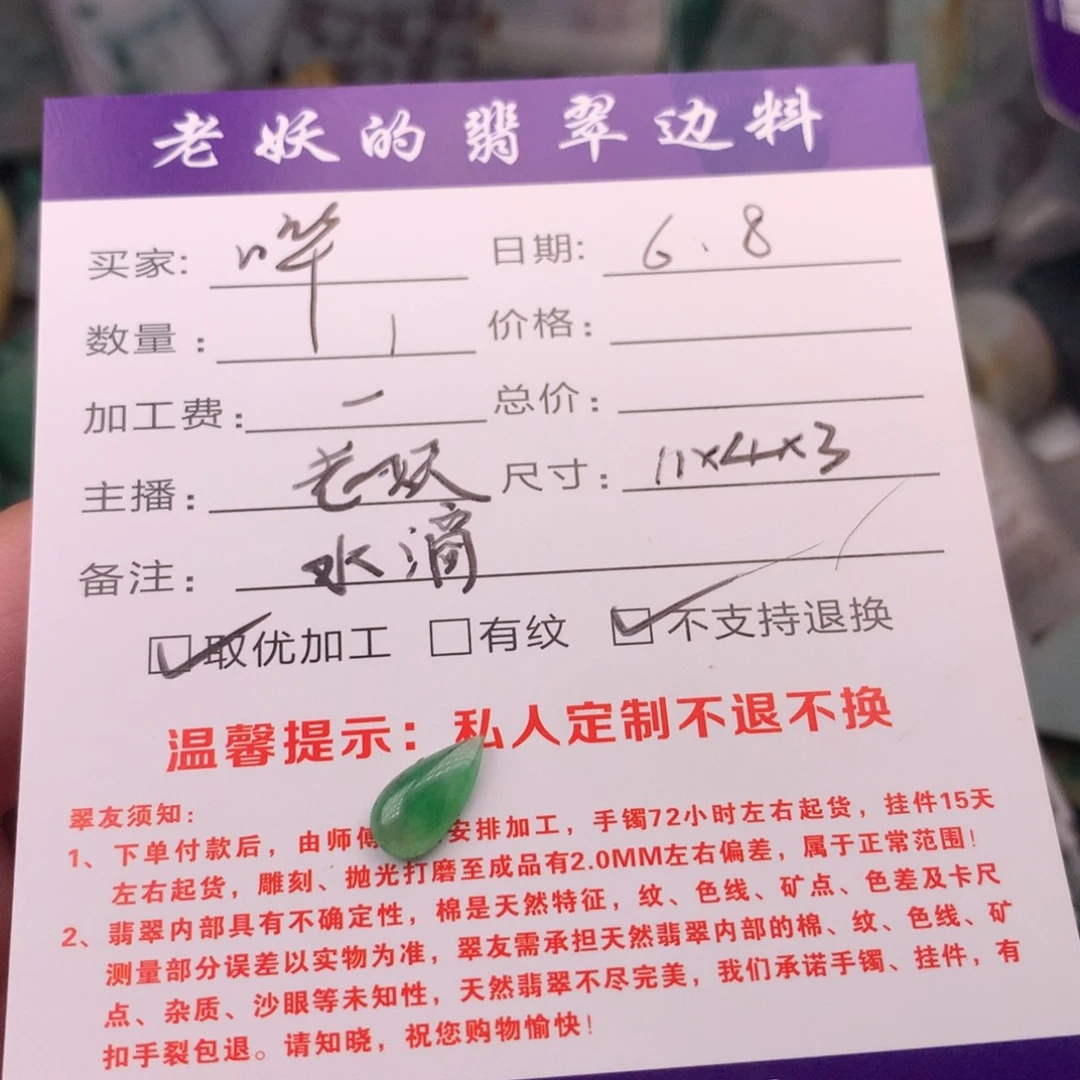 老妖的翡翠边料
买家: 哗 日期: 6.8
数量: 1 价格:
加工费: 一 总价:
主播: 老妖 尺寸: 11x4x3
备注: 水滴
取优加工 有纹 不支持退换
温馨提示: 私人定制不退不换
翠友须知:
1、下单付款后, 由师傅安排加工, 手镯72小时左右起货, 挂件15天
左右起货, 雕刻、抛光打磨至成品有2.0MM左右偏差, 属于正常范围!
2、翡翠内部具有不确定性, 棉是天然特征, 纹、色线、矿点、色差及卡尺
测量部分误差以实物为准, 翠友需承担天然翡翠内部的棉、纹、色线、矿
点、杂质、沙眼等未知性, 天然翡翠不尽完美, 我们承诺手镯、挂件, 有
扣手裂包退。请知晓, 祝您购物愉快!